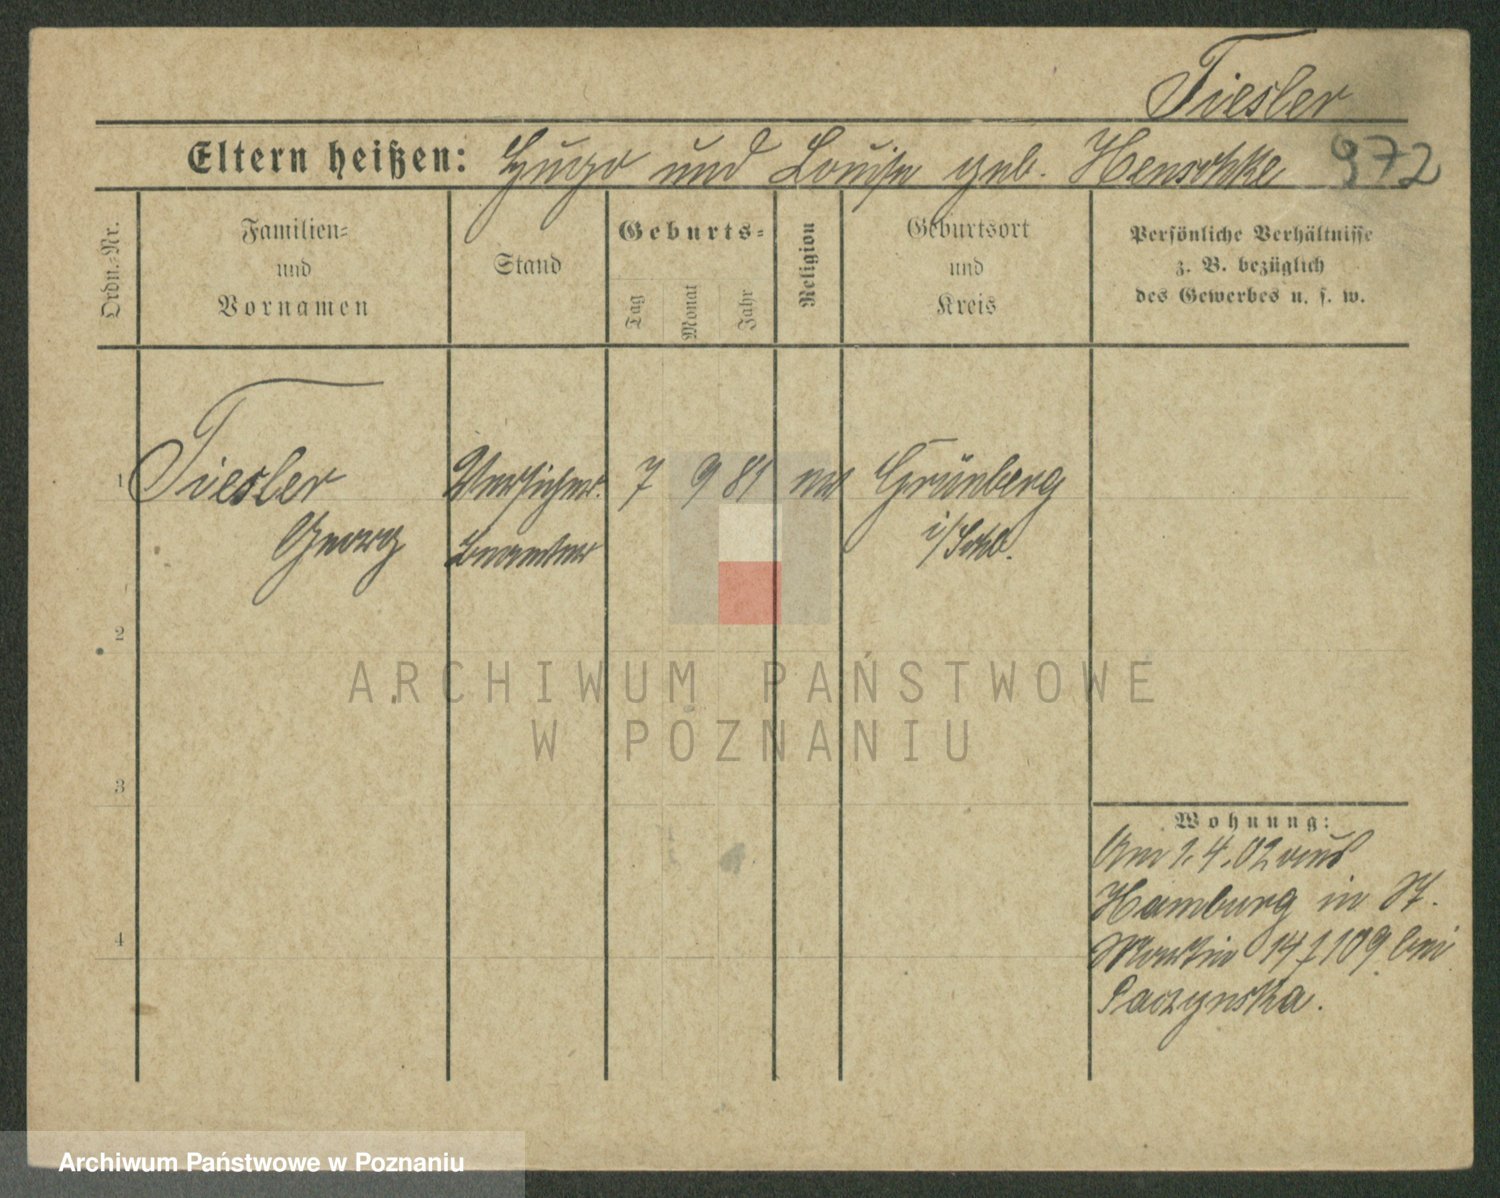 Tiesler
Eltern heißen: Hugo und Louise geb. Henschke 972
Ordn.-Nr.
Familien-
und
Vornamen
Stand
Geburts-
Tag
Monat
Jahr
Religion
Geburtsort
und
Kreis
Persönliche Verhältnisse
z. B. bezüglich
des Gewerbes u. s. w.
1 Tiesler Versicher. 7 9 81 ev Grünberg
Georg Beamter i/Schl.
2
3
4
Wohnung:
Am 1.4.02 aus
Hamburg in St.
Martin 14/109 bei
Paczynska.
ARCHIWUM PAŃSTWOWE
W POZNANIU
Archiwum Państwowe w Poznaniu